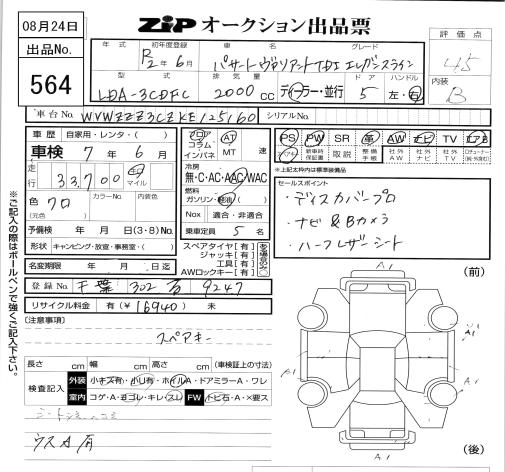 08月24日
ZIP オークション出品票
出品No.
564
年式 初年度登録 車名 グレード
R2年6月 パサートヴァリアントTDI エレガンスライン
型式 排気量 ドア ハンドル
LDA-3CDFC 2000 CC ディーラー・並行 5 左・右
評価点
4.5
内装
B
車台No. WVWZZZ3CZKE125160 シリアルNo.
車歴 自家用・レンタ・( )
車検 7年 6月
走行 33,700 キロ マイル
色 クロ カラーNo. 内装色
(元色)
予備検 年 月 日(3・8)No.
形状 キャンピング・放宣・事務室・( )
名変期限 年 月 日迄
フロア コラム インパネ
AT MT 速
冷房
無・C・AC・AAC/WAC
燃料
ガソリン・軽油( )
Nox 適合・非適合
乗車定員 5 名
スペアタイヤ[有]
ジャッキ[有]
工具[有]
AWロックキー[有]
PS PW SR 革 AW ナビ TV エアB
エアキ 新車時保証書 取説 整備手帳 社外AW 社外ナビ 社外TV
※上記太枠内は標準装備品
セールスポイント
・ディスカバープロ
・ナビ&Bカメラ
・ハーフレザーシート
登録No. 千葉 302 ち 9247
リサイクル料金 有(¥16940) 未
(注意事項)
スペアキー
長さ cm 幅 cm 高さ cm (車検証上の寸法)
検査記入 外装 小キズ有・小U有・ホイルA・ドアミラーA・ワレ
室内 コゲ・A・ヨゴレ・キレ・スレ FW トビ石・A・×要ス
ウスA有
(前)
(後)
A1
A1
A1
A1
A1
※ご記入の際はボールペンで強くご記入下さい。